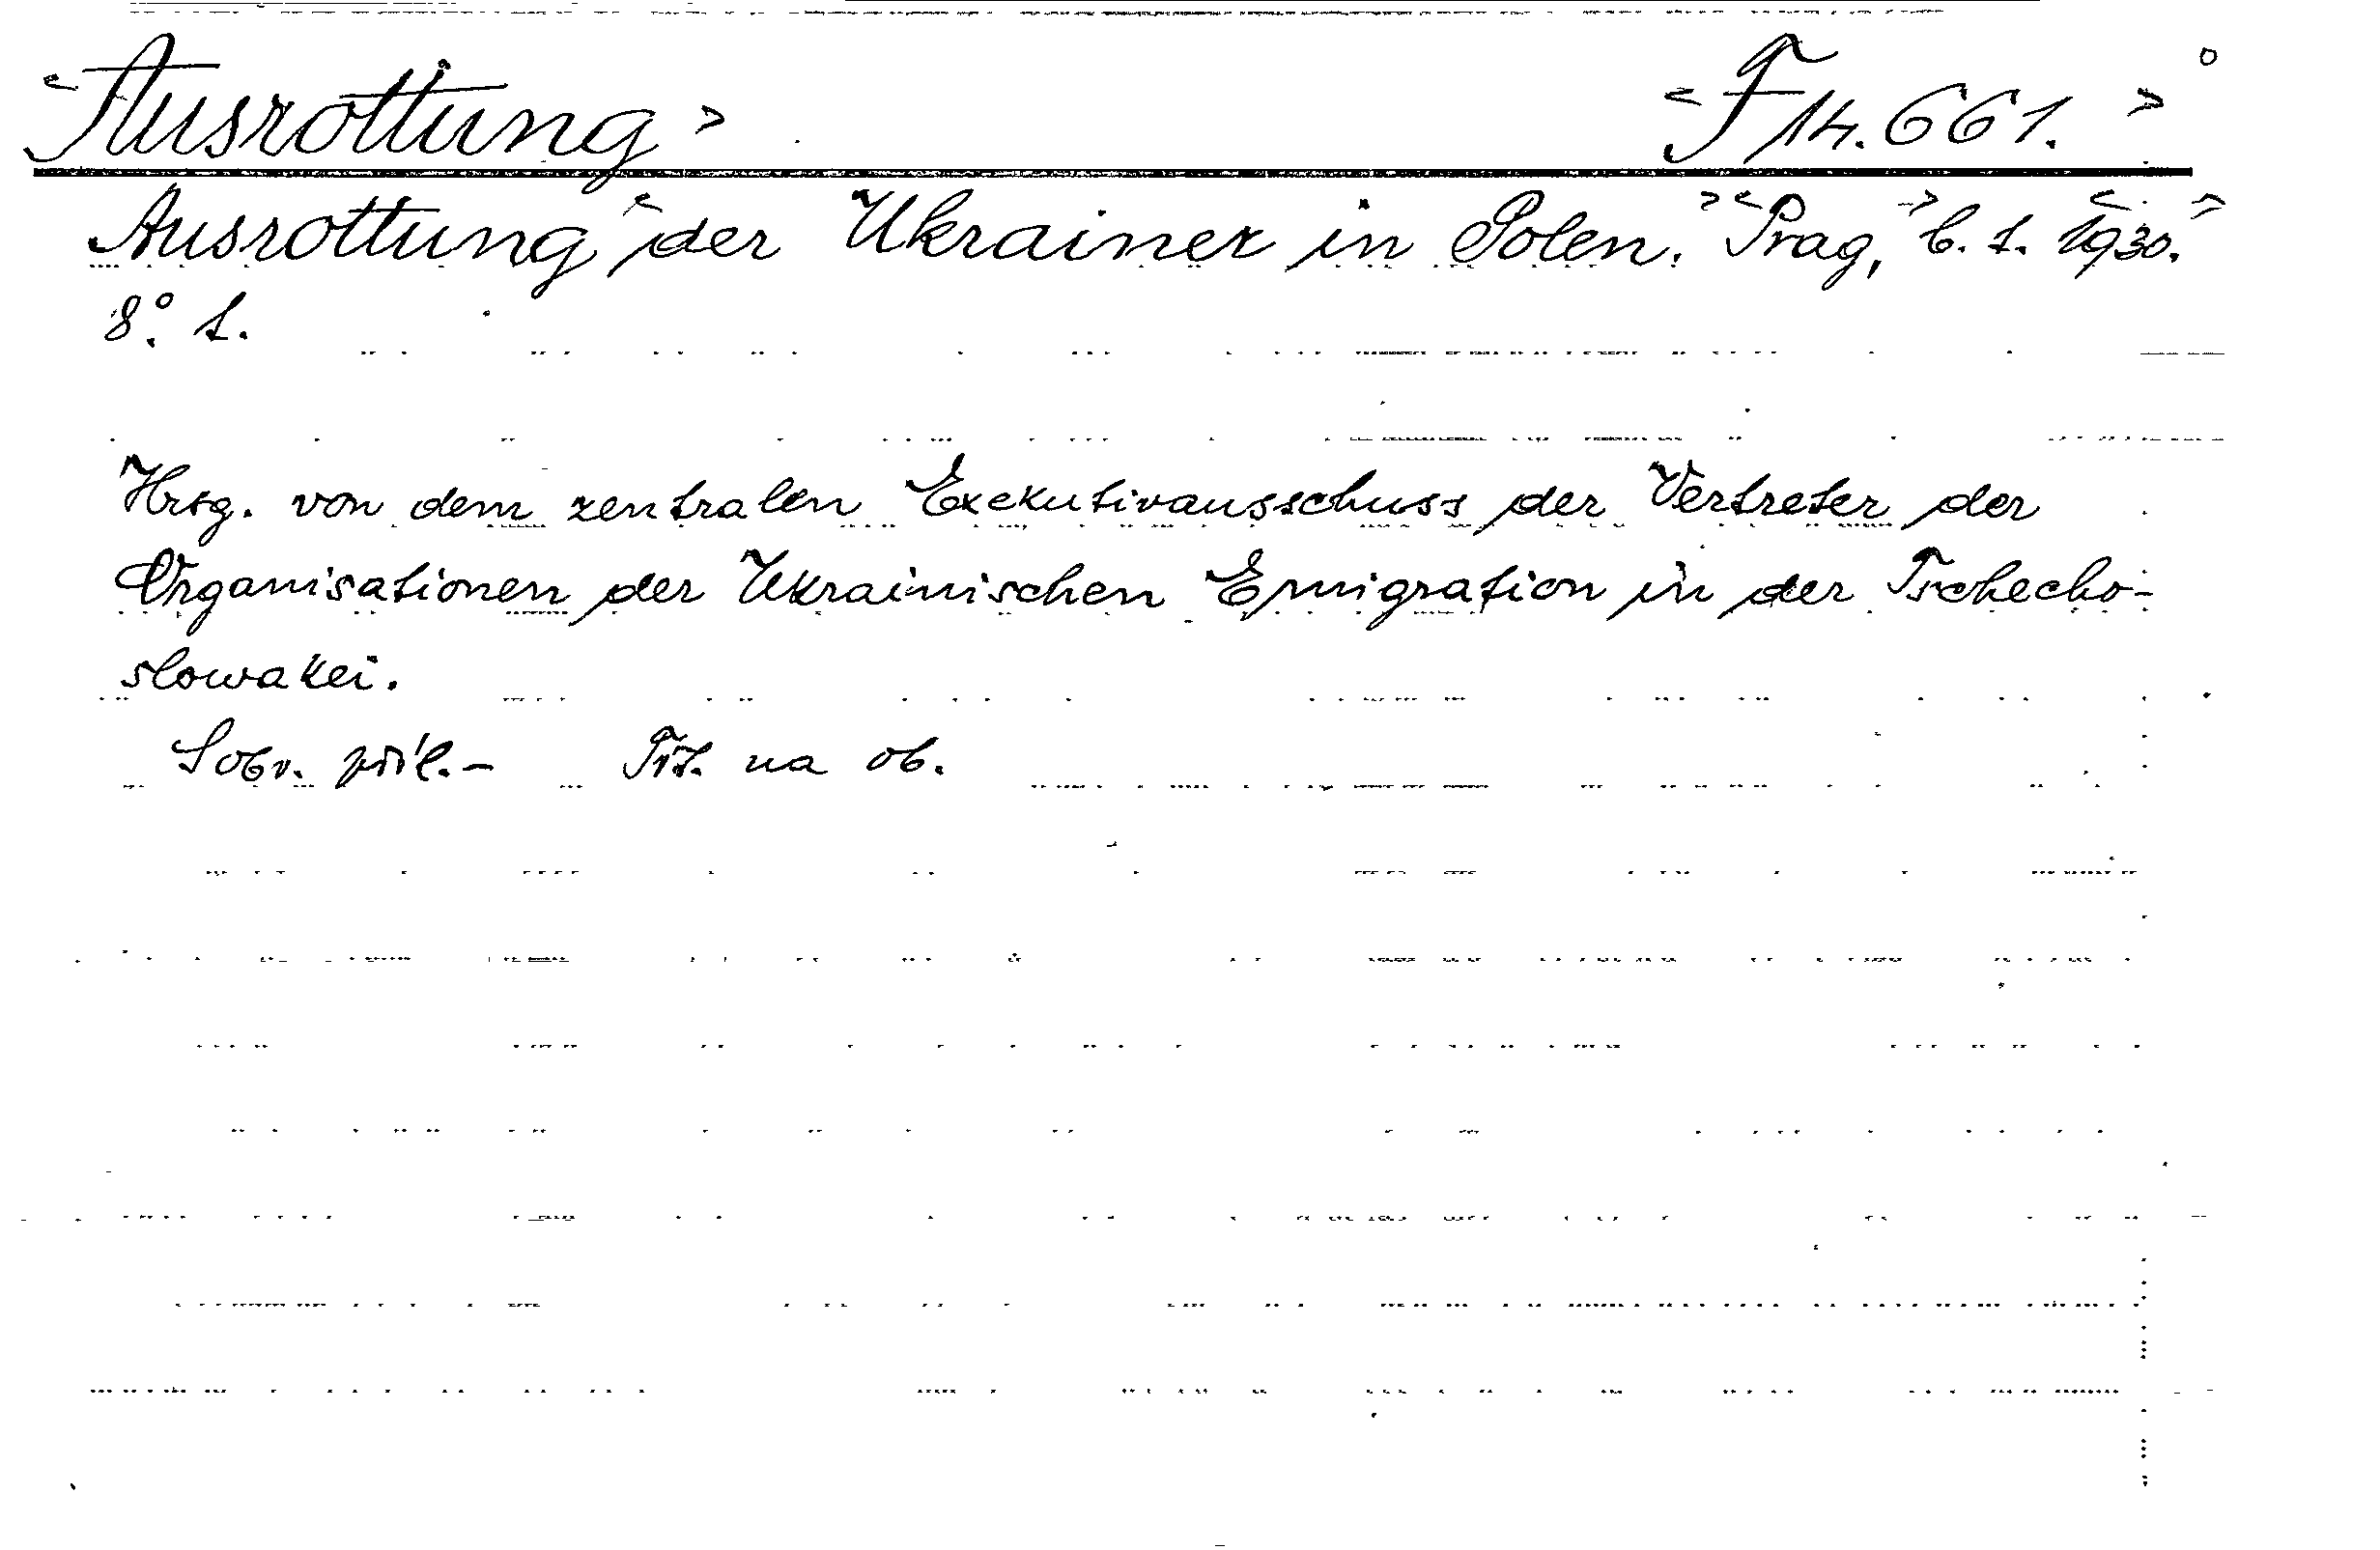 <Ausrottung> <F 14.661.>
Ausrottung <der Ukrainer in Polen.> <Prag,> b. t. <1930.>
8°. 1.
Hrsg. von dem zentralen Exekutivausschuss der Vertreter der
Organisationen der Ukrainischen Emigration in der Tschecho-
slowakei.
Sobr. příl.- Tit. na ob.